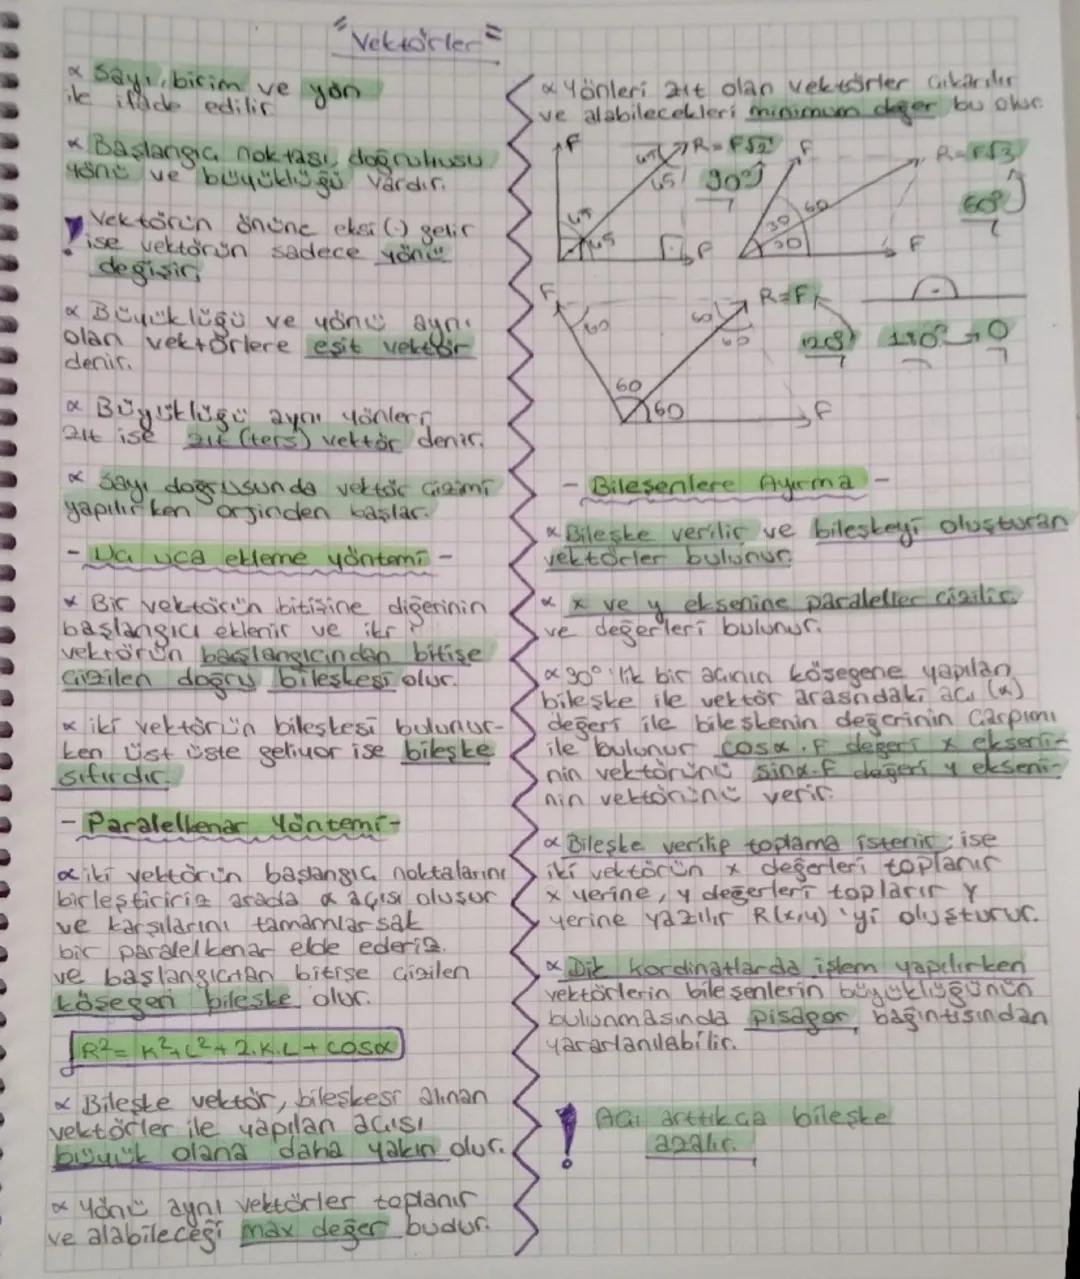 "Vektörler"
∝ Sayı, birim ve yön
ile ifade edilir.
∝ Başlangıç noktası, doğrultusu
yönü ve büyüklüğü vardır.
! Vektörün önüne eksi (-) gelir
ise vektörün sadece yönü
değişir.
∝ Büyüklüğü ve yönü aynı
olan vektörlere eşit vektör
denir.
∝ Büyüklüğü aynı yönleri
zıt ise zıt (ters) vektör denir.
∝ Sayı doğrusunda vektör çizimi
yapılırken orjinden başlar.
- Uca uca ekleme yöntemi -
∝ Bir vektörün bitişine diğerinin
başlangıcı eklenir ve
vektörün başlangıcından bitişe
çizilen doğru bileşkesi olur.
∝ iki vektörün bileşkesi bulunur-
ken üst üste geliyor ise bileşke
sıfırdır.
- Paralelkenar Yöntemi -
∝ iki vektörün başlangıç noktalarını
birleştiririz arada α açısı oluşur
ve karşılarını tamamlarsak
bir paralelkenar elde ederiz.
ve başlangıçtan bitişe çizilen
köşegen bileşke olur.
R² = K²+L²+2.K.L+cosα
∝ Bileşke vektör, bileşkesi alınan
vektörler ile yapılan açısı
büyük olana daha yakın olur.
∝ Yönü aynı vektörler toplanır
ve alabileceği max değer budur.
∝ Yönleri zıt olan vektörler çıkarılır
ve alabilecekleri minimum değer bu olur.
F 45 R=F√2 45 90° 45 45 F
F R=F√3 60 60° 30 30 F
F 60 60 R=F 60 120° 180° → 0
60 60 F
- Bileşenlere Ayırma -
∝ Bileşke verilir ve bileşkeyi oluşturan
vektörler bulunur.
∝ x ve y eksenine paraleller çizilir.
ve değerleri bulunur.
∝ 90° lik bir açının köşegene yapılan
bileşke ile vektör arasındaki açı (α)
değeri ile bileşkenin değerinin çarpımı
ile bulunur cosα.F değeri x ekseni-
nin vektörünü sinα.F değeri y ekseni-
nin vektörünü verir.
∝ Bileşke verilip toplama istenir ise
iki vektörün x değerleri toplanır
x yerine, y değerleri toplarır y
yerine yazılır R(x,y) 'yi oluşturur.
∝ Dik kordinatlarda işlem yapılırken
vektörlerin bileşenlerin büyüklüğünün
bulunmasında pisagor bağıntısından
yararlanılabilir.
! Açı arttıkça bileşke
azalır.